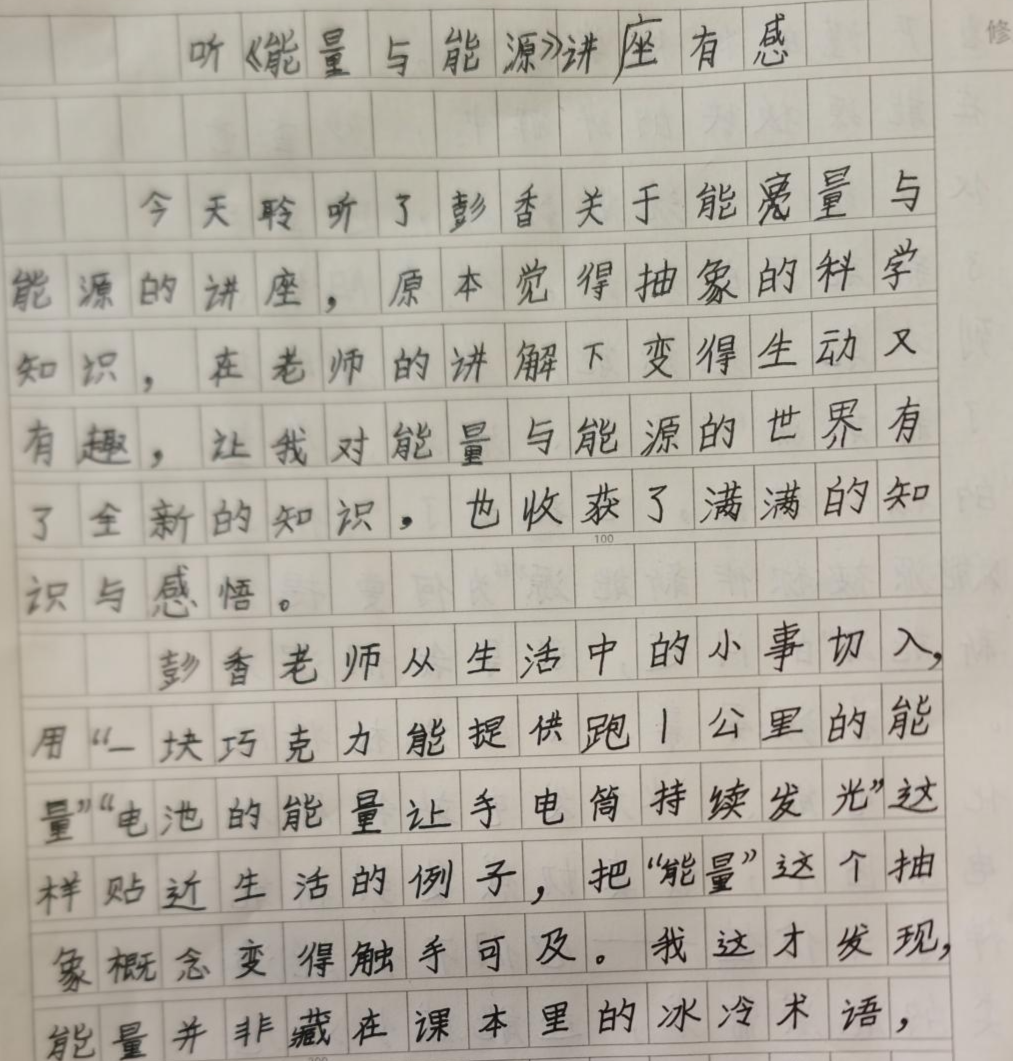 听《能量与能源》讲座有感
今天聆听了彭香关于能量与
能源的讲座，原本觉得抽象的科学
知识，在老师的讲解下变得生动又
有趣，让我对能量与能源的世界有
了全新的知识，也收获了满满的知
100
识与感悟。
彭香老师从生活中的小事切入，
用“一块巧克力能提供跑1公里的能
量”“电池的能量让手电筒持续发光”这
样贴近生活的例子，把“能量”这个抽
象概念变得触手可及。我这才发现，
能量并非藏在课本里的冰冷术语，
修